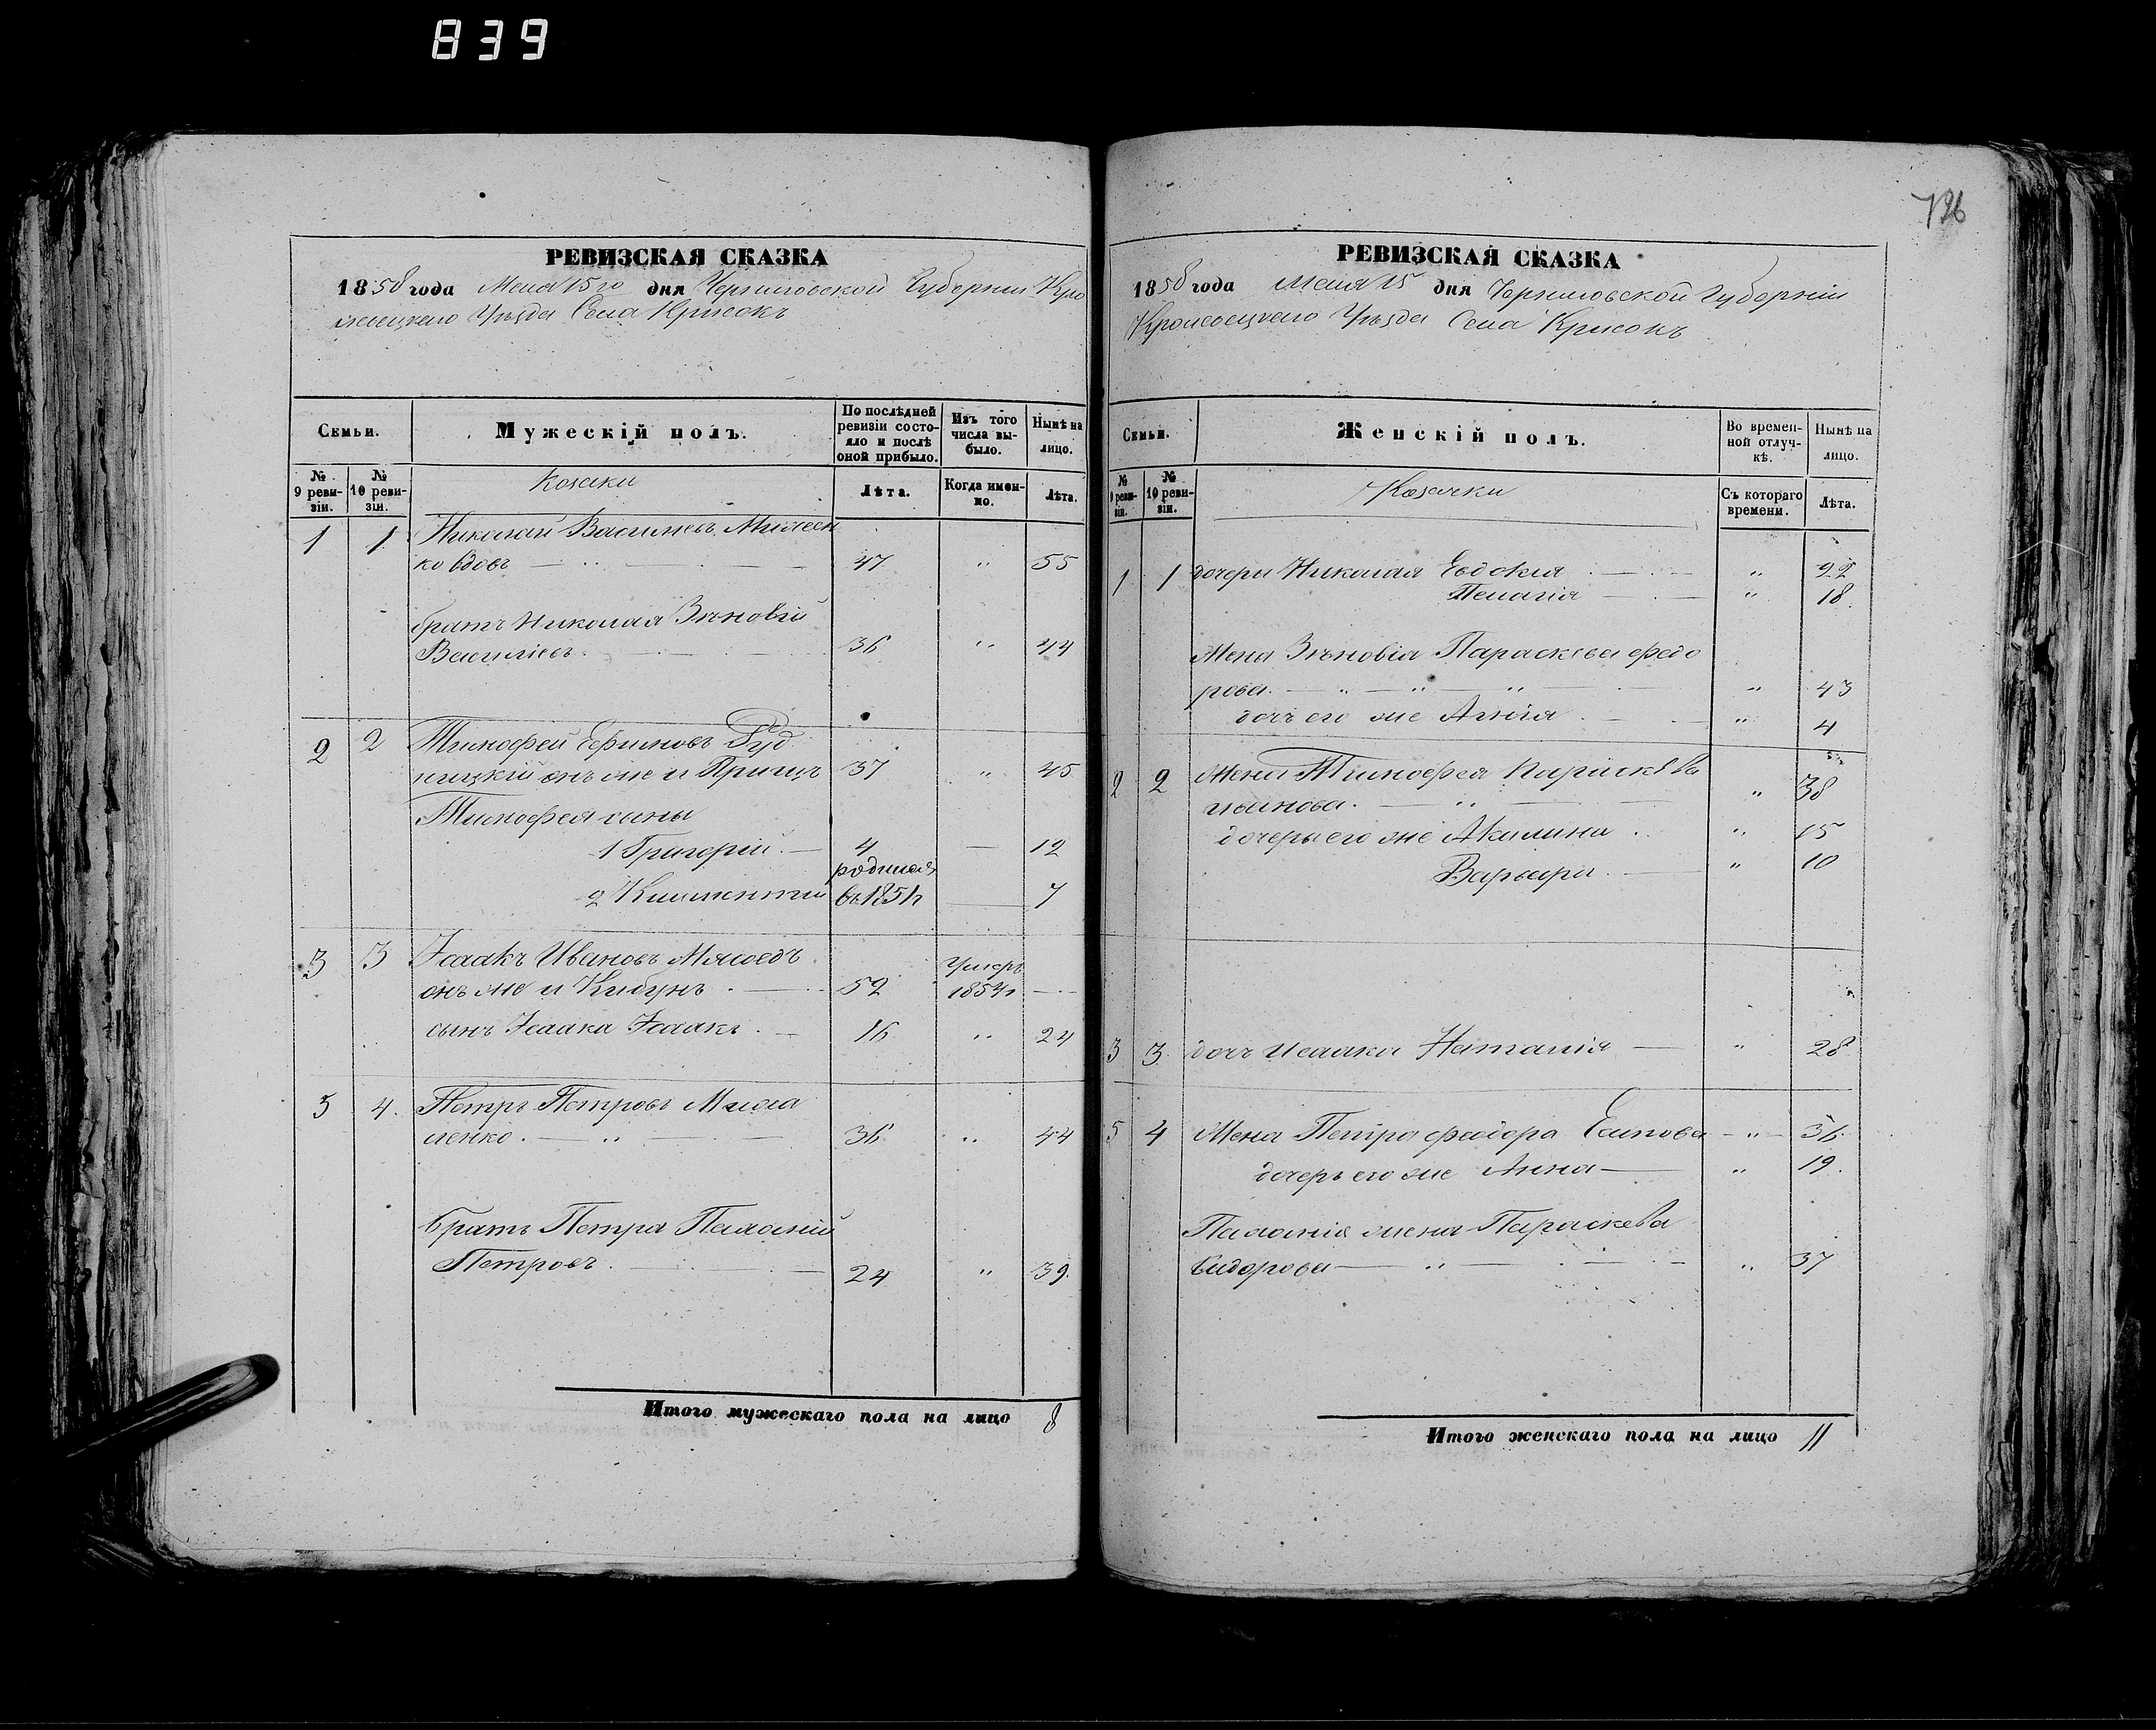 839
136
РЕВИЗСКАЯ СКАЗКА
1858 года Мая 15го дня Черниговской Губерніи Кро
левецкаго Уѣзда Села Крисокъ
Семьи.
Мужескій полъ.
По послѣдней ревизіи состояло и послѣ оной прибыло.
Изъ того числа выбыло.
Нынѣ на лицо.
№ 9 ревизіи.
№ 10 ревизіи.
Козаки
Лѣта.
Когда именно.
Лѣта.
1 1 Николай Васильевъ
ко вдовъ 47 " 55
братъ Николая Зѣновій
Васильевъ 36 " 44
2 2 Тимофей Ефимовъ Руд
ницкій онъ же и 37 " 45
Тимофея сыны
1 Григорій 4 — 12
родился
2 Климентій въ 1851г — 7
3 3 Исаакъ Ивановъ Мясоедъ умеръ
онъ же и 52 1854г —
сынъ Исаака Исаакъ 16 " 24
5 4. Петръ Петровъ
ленко 36 " 44
братъ Петра Палажій
Петровъ 24 " 39.
Итого мужескаго пола на лицо 8
РЕВИЗСКАЯ СКАЗКА
1858 года Мая 15 дня Черниговской Губерніи
Кролевецкаго Уѣзда Села Крисокъ
Семьи.
Женскій полъ.
Во временной отлучкѣ.
Нынѣ на лицо.
№ 9 ревизіи.
№ 10 ревизіи.
Козачки
Съ котораго времени.
Лѣта.
1 1 дочери Николая Евдокія " 22
Пелагія " 18.
Жена Зѣновія Параскева Федо
рова " 43
дочь его же Агнія " 4
2 2 Жена Тимофея Параскѣва
Иванова " 38
дочеры его же Акилина " 15
Варвара " 10
3 3. дочь Исаака Наталія " 28
5 4 Жена Петра Феодора Есипова " 36
дочерь его же Анна " 19.
жена Параскева
Сидорова " 37
Итого женскаго пола на лицо 11